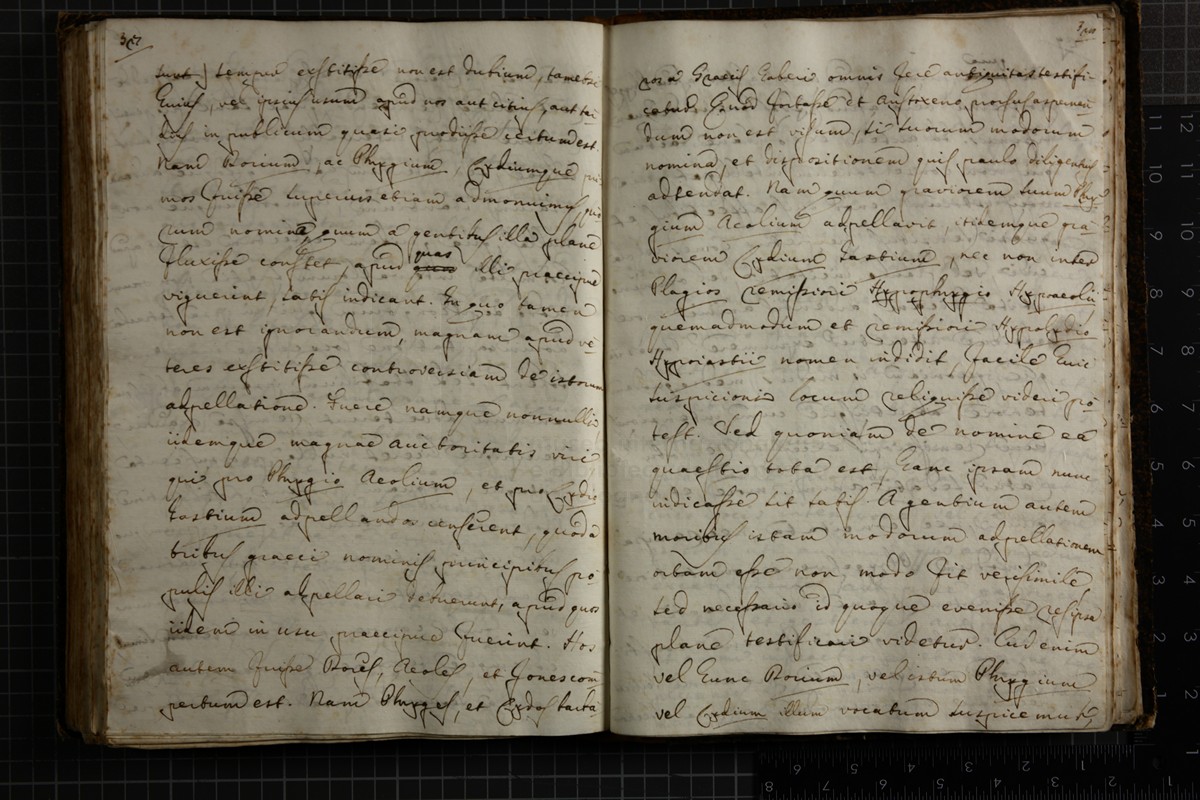 sunt] tempus exstitisse non est dubium, tametsi
huius, vel ipsius usum apud nos aut citius, aut tar
in publicum quasi prodisse certum est.
Nam Dorium, ac Phrygium, Lydiumque pri
mos fuisse superius etiam admonuimus, quo
rum nomina, quum a gentibus illa plane
fluxisse constet, apud quas illi praecipue
viguerint, satis indicant. In quo tamen
non est ignorandum, magnam apud ve
teres exstitisse controversiam de istorum
adpellatione. Fuere namque nonnulli
iidemque magnae auctoritatis viri
qui pro Phrygio Aeolium, et pro Lydio
Iastium adpellandos censerent, quod a
tribus graeci nominis principibus po
pulis illi adpellari debuerint, apud quos
iidem in usu praecipue fuerint. Hos
autem fuisse Dores, Aeoles, et Iones com
pertum est. Nam Phryges, et Lydos barba
ros a Graecis haberi omnis fere antiquitas testifi
catur. Quod fortasse et Aristoxeno prorsus aspernan
dum non est visum, si suorum modorum
nomina, et dispositionem quis paulo diligentius
adtendat. Nam quum graviorem suum Phry
gium Aeolium adpellavit, itidemque gra
viorem Lydium Iastium, nec non inter
Plagios remissiori Hypophrygio Hypoaeolii
quemadmodum et remissiori Hypolydio
Hypoiastii nomen indidit, facile huic
suspicioni locum reliquisse videri po
test. Sed quoniam de nomine ea
quaestio tota est, hanc ipsam nunc
indicasse sit satis. A gentium autem
moribus istam modorum adpellationem
ortam esse non modo fit verisimile
sed necessario id quoque evenisse res ipsa
plane testificari videtur. Cur enim
vel hunc Dorium, vel istum Phrygium
vel Lydium illum vocatum suspicemur,